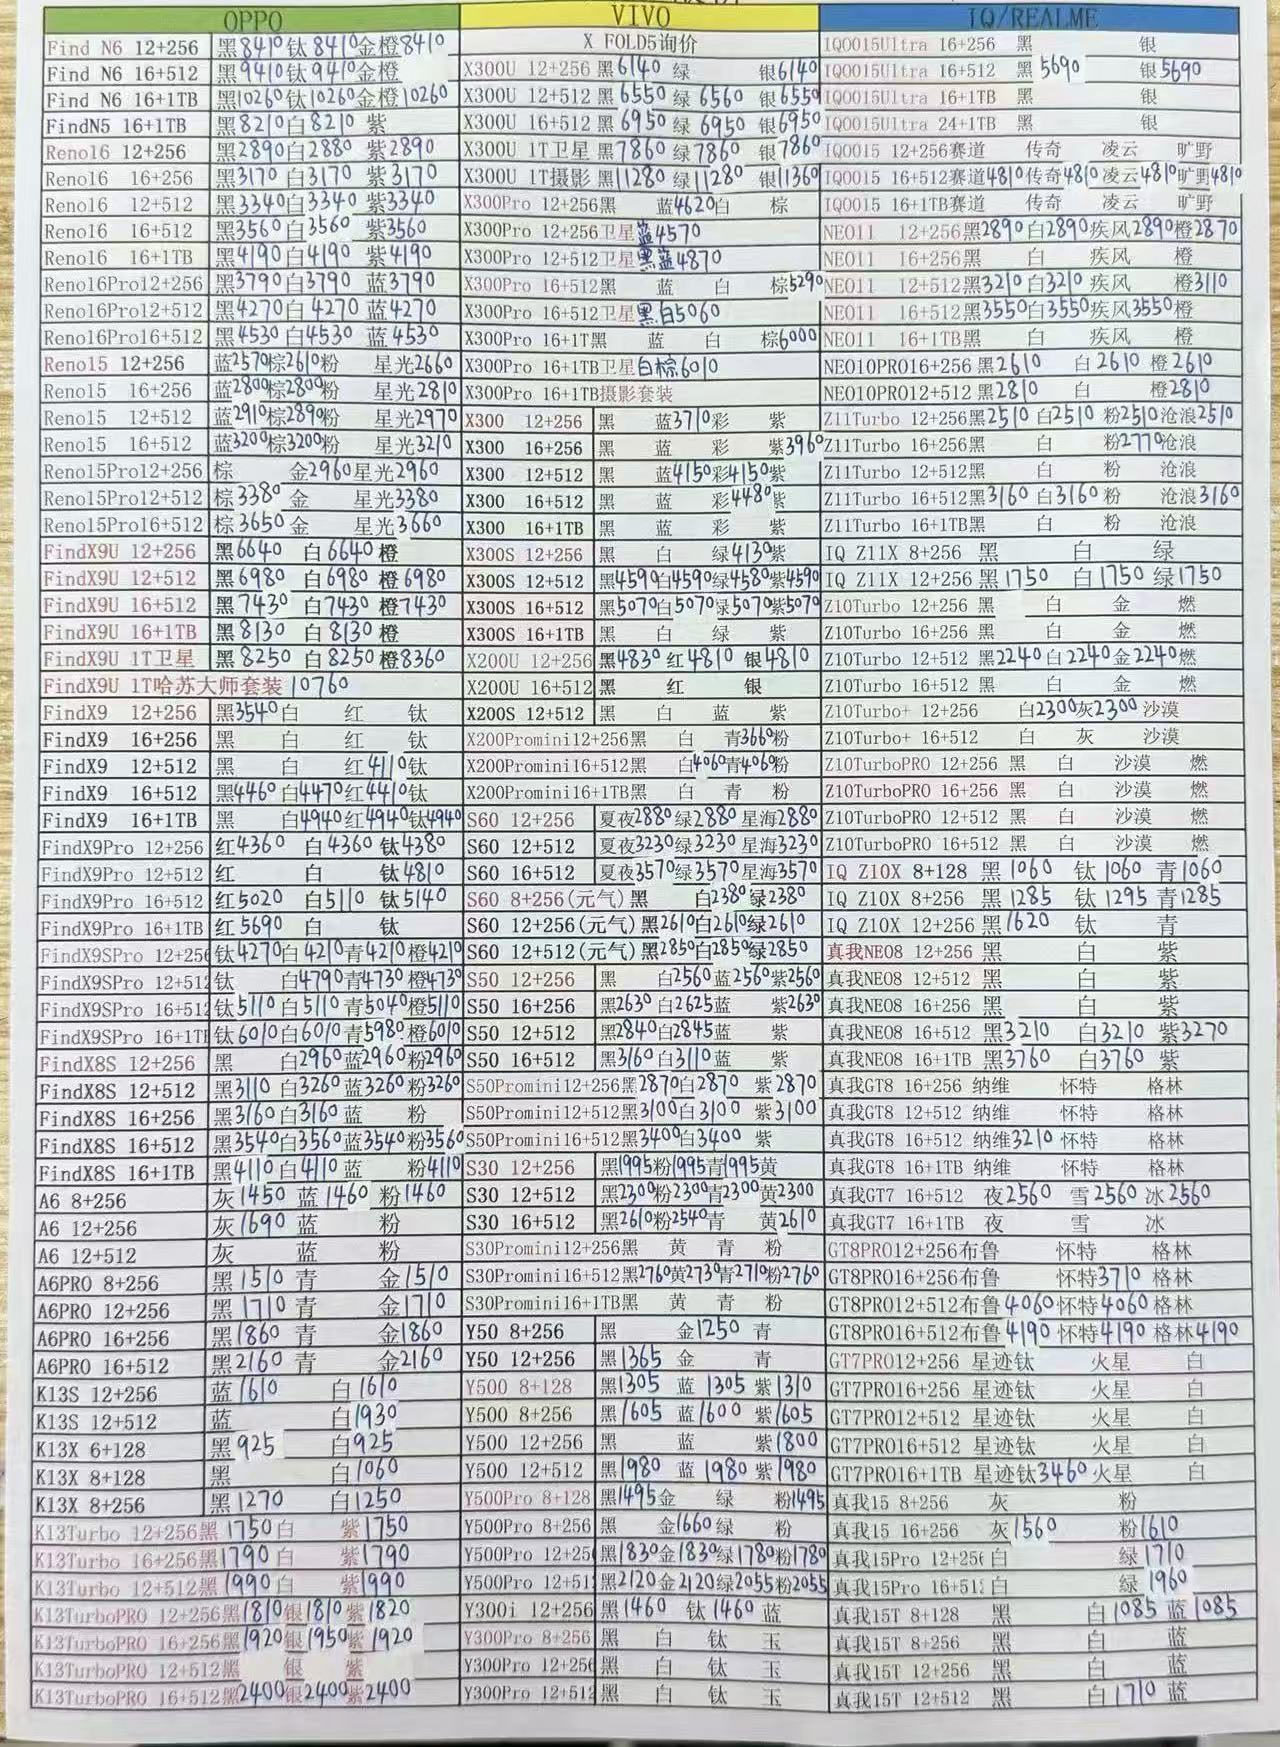 OPPO
Find N6 12+256 黑8410钛8410金橙8410
Find N6 16+512 黑9410钛9410金橙
Find N6 16+1TB 黑10260钛10260金橙10260
FindN5 16+1TB 黑8210白8210紫
Reno16 12+256 黑2890白2880 紫2890
Reno16 16+256 黑3170白3170 紫3170
Reno16 12+512 黑3340白3340 紫3340
Reno16 16+512 黑3560白3560 紫3560
Reno16 16+1TB 黑4190白4190 紫4190
Reno16Pro12+256 黑3790白3790 蓝3790
Reno16Pro12+512 黑4270白4270 蓝4270
Reno16Pro16+512 黑4530白4530 蓝4530
Reno15 12+256 蓝2570棕2610粉 星光2660
Reno15 16+256 蓝2800棕2800粉 星光2810
Reno15 12+512 蓝2910棕2890粉 星光2970
Reno15 16+512 蓝3200棕3200粉 星光3210
Reno15Pro12+256 棕 金2960星光2960
Reno15Pro12+512 棕3380 金 星光3380
Reno15Pro16+512 棕3650金 星光3660
FindX9U 12+256 黑6640 白6640橙
FindX9U 12+512 黑6980 白6980 橙6980
FindX9U 16+512 黑7430 白7430 橙7430
FindX9U 16+1TB 黑8130 白8130 橙
FindX9U 1T卫星 黑8250 白8250橙8360
FindX9U 1T哈苏大师套装 10760
FindX9 12+256 黑3540白 红 钛
FindX9 16+256 黑 白 红 钛
FindX9 12+512 黑 白 红4110钛
FindX9 16+512 黑4460白4470红4410钛
FindX9 16+1TB 黑 白4940红4940钛4940
FindX9Pro 12+256 红4360 白4360 钛4380
FindX9Pro 12+512 红 白 钛4810
FindX9Pro 16+512 红5020 白5110 钛5140
FindX9Pro 16+1TB 红5690 白 钛
FindX9SPro 12+256 钛4270白4210青4210橙4210
FindX9SPro 12+512 钛 白4790青4730橙4730
FindX9SPro 16+512 钛5110白5110青5040橙5110
FindX9SPro 16+1TB 钛6010白6010青5980橙6010
FindX8S 12+256 黑 白2960蓝2960粉2960
FindX8S 12+512 黑3110 白3260蓝3260粉3260
FindX8S 16+256 黑3160白3160蓝 粉
FindX8S 16+512 黑3540白3560蓝3540粉3560
FindX8S 16+1TB 黑4110白4110蓝 粉4110
A6 8+256 灰1450 蓝1460 粉1460
A6 12+256 灰1690 蓝 粉
A6 12+512 灰 蓝 粉
A6PRO 8+256 黑1510 青 金1510
A6PRO 12+256 黑1710 青 金1710
A6PRO 16+256 黑1860 青 金1860
A6PRO 16+512 黑2160 青 金2160
K13S 12+256 蓝1610 白1610
K13S 12+512 蓝 白1930
K13X 6+128 黑925 白925
K13X 8+128 黑 白1060
K13X 8+256 黑1270 白1250
K13Turbo 12+256黑1750白 紫1750
K13Turbo 16+256黑1790白 紫1790
K13Turbo 12+512黑1990白 紫1990
K13TurboPRO 12+256黑1810银1810紫1820
K13TurboPRO 16+256黑1920银1950紫1920
K13TurboPRO 12+512黑 银 紫
K13TurboPRO 16+512黑2400银2400紫2400
VIVO
X FOLD5询价
X300U 12+256 黑6140 绿 银6140
X300U 12+512 黑6550 绿6560 银6550
X300U 16+512 黑6950 绿6950 银6950
X300U 1T卫星 黑7860 绿7860 银7860
X300U 1T摄影 黑11280 绿11280 银11360
X300Pro 12+256黑 蓝4620白 棕
X300Pro 12+256卫星蓝4570
X300Pro 12+512卫星黑蓝4870
X300Pro 16+512黑 蓝 白 棕5290
X300Pro 16+512卫星黑白5060
X300Pro 16+1T黑 蓝 白 棕6000
X300Pro 16+1TB卫星白棕6010
X300Pro 16+1TB摄影套装
X300 12+256 黑 蓝3710彩 紫
X300 16+256 黑 蓝 彩 紫3960
X300 12+512 黑 蓝4150彩4150紫
X300 16+512 黑 蓝 彩4480紫
X300 16+1TB 黑 蓝 彩 紫
X300S 12+256 黑 白 绿4130紫
X300S 12+512 黑4590白4590绿4580紫4590
X300S 16+512 黑5070白5070绿5070紫5070
X300S 16+1TB 黑 白 绿 紫
X200U 12+256 黑4830 红4810 银4810
X200U 16+512 黑 红 银
X200S 12+512 黑 白 蓝 紫
X200Promini12+256黑 白 青3660粉
X200Promini16+512黑 白4060青4060粉
X200Promini16+1TB黑 白 青 粉
S60 12+256 夏夜2880绿2880 星海2880
S60 12+512 夏夜3230绿3230 星海3230
S60 16+512 夏夜3570绿3570 星海3570
S60 8+256(元气)黑 白2380绿2380
S60 12+256(元气)黑2610白2610绿2610
S60 12+512(元气)黑2850白2850绿2850
S50 12+256 黑 白2560蓝2560紫2560
S50 16+256 黑2630白2625蓝 紫2630
S50 12+512 黑2840白2845蓝 紫
S50 16+512 黑3160白3110蓝 紫
S50Promini12+256黑2870白2870 紫2870
S50Promini12+512黑3100白3100 紫3100
S50Promini16+512黑3400白3400 紫
S30 12+256 黑1995粉1995青1995黄
S30 12+512 黑2300粉2300青2300黄2300
S30 16+512 黑2610粉2540青 黄2610
S30Promini12+256黑 黄 青 粉
S30Promini16+512黑2760黄2730青2710粉2760
S30Promini16+1TB黑 黄 青 粉
Y50 8+256 黑 金1250 青
Y50 12+256 黑1365 金 青
Y500 8+128 黑1305 蓝1305 紫1310
Y500 8+256 黑1605 蓝1600 紫1605
Y500 12+256 黑 蓝 紫1800
Y500 12+512 黑1980 蓝1980 紫1980
Y500Pro 8+128 黑1495金 绿 粉1495
Y500Pro 8+256 黑 金1660绿 粉
Y500Pro 12+256 黑1830金1830绿1780粉1780
Y500Pro 12+512 黑2120金2120绿2055粉2055
Y300i 12+256 黑1460 钛1460蓝
Y300Pro 8+256 黑 白 钛 玉
Y300Pro 12+256 黑 白 钛 玉
Y300Pro 12+512 黑 白 钛 玉
IQ/REALME
IQOO15Ultra 16+256 黑 银
IQOO15Ultra 16+512 黑5690 银5690
IQOO15Ultra 16+1TB 黑 银
IQOO15Ultra 24+1TB 黑 银
IQOO15 12+256赛道 传奇 凌云 旷野
IQOO15 16+512赛道4810传奇4810凌云4810旷野4810
IQOO15 16+1TB赛道 传奇 凌云 旷野
NEO11 12+256黑2890白2890疾风2890橙2870
NEO11 16+256黑 白 疾风 橙
NEO11 12+512黑3210白3210疾风 橙3110
NEO11 16+512黑3550白3550疾风3550橙
NEO11 16+1TB黑 白 疾风 橙
NEO10PRO16+256 黑2610 白2610 橙2610
NEO10PRO12+512 黑2810 白 橙2810
Z11Turbo 12+256黑2510白2510粉2510沧浪2510
Z11Turbo 16+256黑 白 粉2770沧浪
Z11Turbo 12+512黑 白 粉 沧浪
Z11Turbo 16+512黑3160白3160粉 沧浪3160
Z11Turbo 16+1TB黑 白 粉 沧浪
IQ Z11X 8+256 黑 白 绿
IQ Z11X 12+256 黑1750 白1750 绿1750
Z10Turbo 12+256 黑 白 金 燃
Z10Turbo 16+256 黑 白 金 燃
Z10Turbo 12+512 黑2240白2240金2240燃
Z10Turbo 16+512 黑 白 金 燃
Z10Turbo+ 12+256 白2300灰2300沙漠
Z10Turbo+ 16+512 白 灰 沙漠
Z10TurboPRO 12+256 黑 白 沙漠 燃
Z10TurboPRO 16+256 黑 白 沙漠 燃
Z10TurboPRO 12+512 黑 白 沙漠 燃
Z10TurboPRO 16+512 黑 白 沙漠 燃
IQ Z10X 8+128 黑1060 钛1060 青1060
IQ Z10X 8+256 黑1285 钛1295 青1285
IQ Z10X 12+256 黑1620 钛 青
真我NEO8 12+256 黑 白 紫
真我NEO8 12+512 黑 白 紫
真我NEO8 16+256 黑 白 紫
真我NEO8 16+512 黑3210 白3210 紫3270
真我NEO8 16+1TB 黑3760 白3760 紫
真我GT8 16+256 纳维 怀特 格林
真我GT8 12+512 纳维 怀特 格林
真我GT8 16+512 纳维3210怀特 格林
真我GT8 16+1TB 纳维 怀特 格林
真我GT7 16+512 夜2560 雪2560 冰2560
真我GT7 16+1TB 夜 雪 冰
GT8PRO12+256布鲁 怀特 格林
GT8PRO16+256布鲁 怀特3710 格林
GT8PRO12+512布鲁4060怀特4060格林
GT8PRO16+512布鲁4190怀特4190格林4190
GT7PRO12+256 星迹钛 火星 白
GT7PRO16+256 星迹钛 火星 白
GT7PRO12+512 星迹钛 火星 白
GT7PRO16+512 星迹钛 火星 白
GT7PRO16+1TB 星迹钛3460火星 白
真我15 8+256 灰 粉
真我15 16+256 灰1560 粉1610
真我15Pro 12+256 白 绿1710
真我15Pro 16+512 白 绿1960
真我15T 8+128 黑 白1085 蓝1085
真我15T 8+256 黑 白 蓝
真我15T 12+256 黑 白 蓝
真我15T 12+512 黑 白1710 蓝